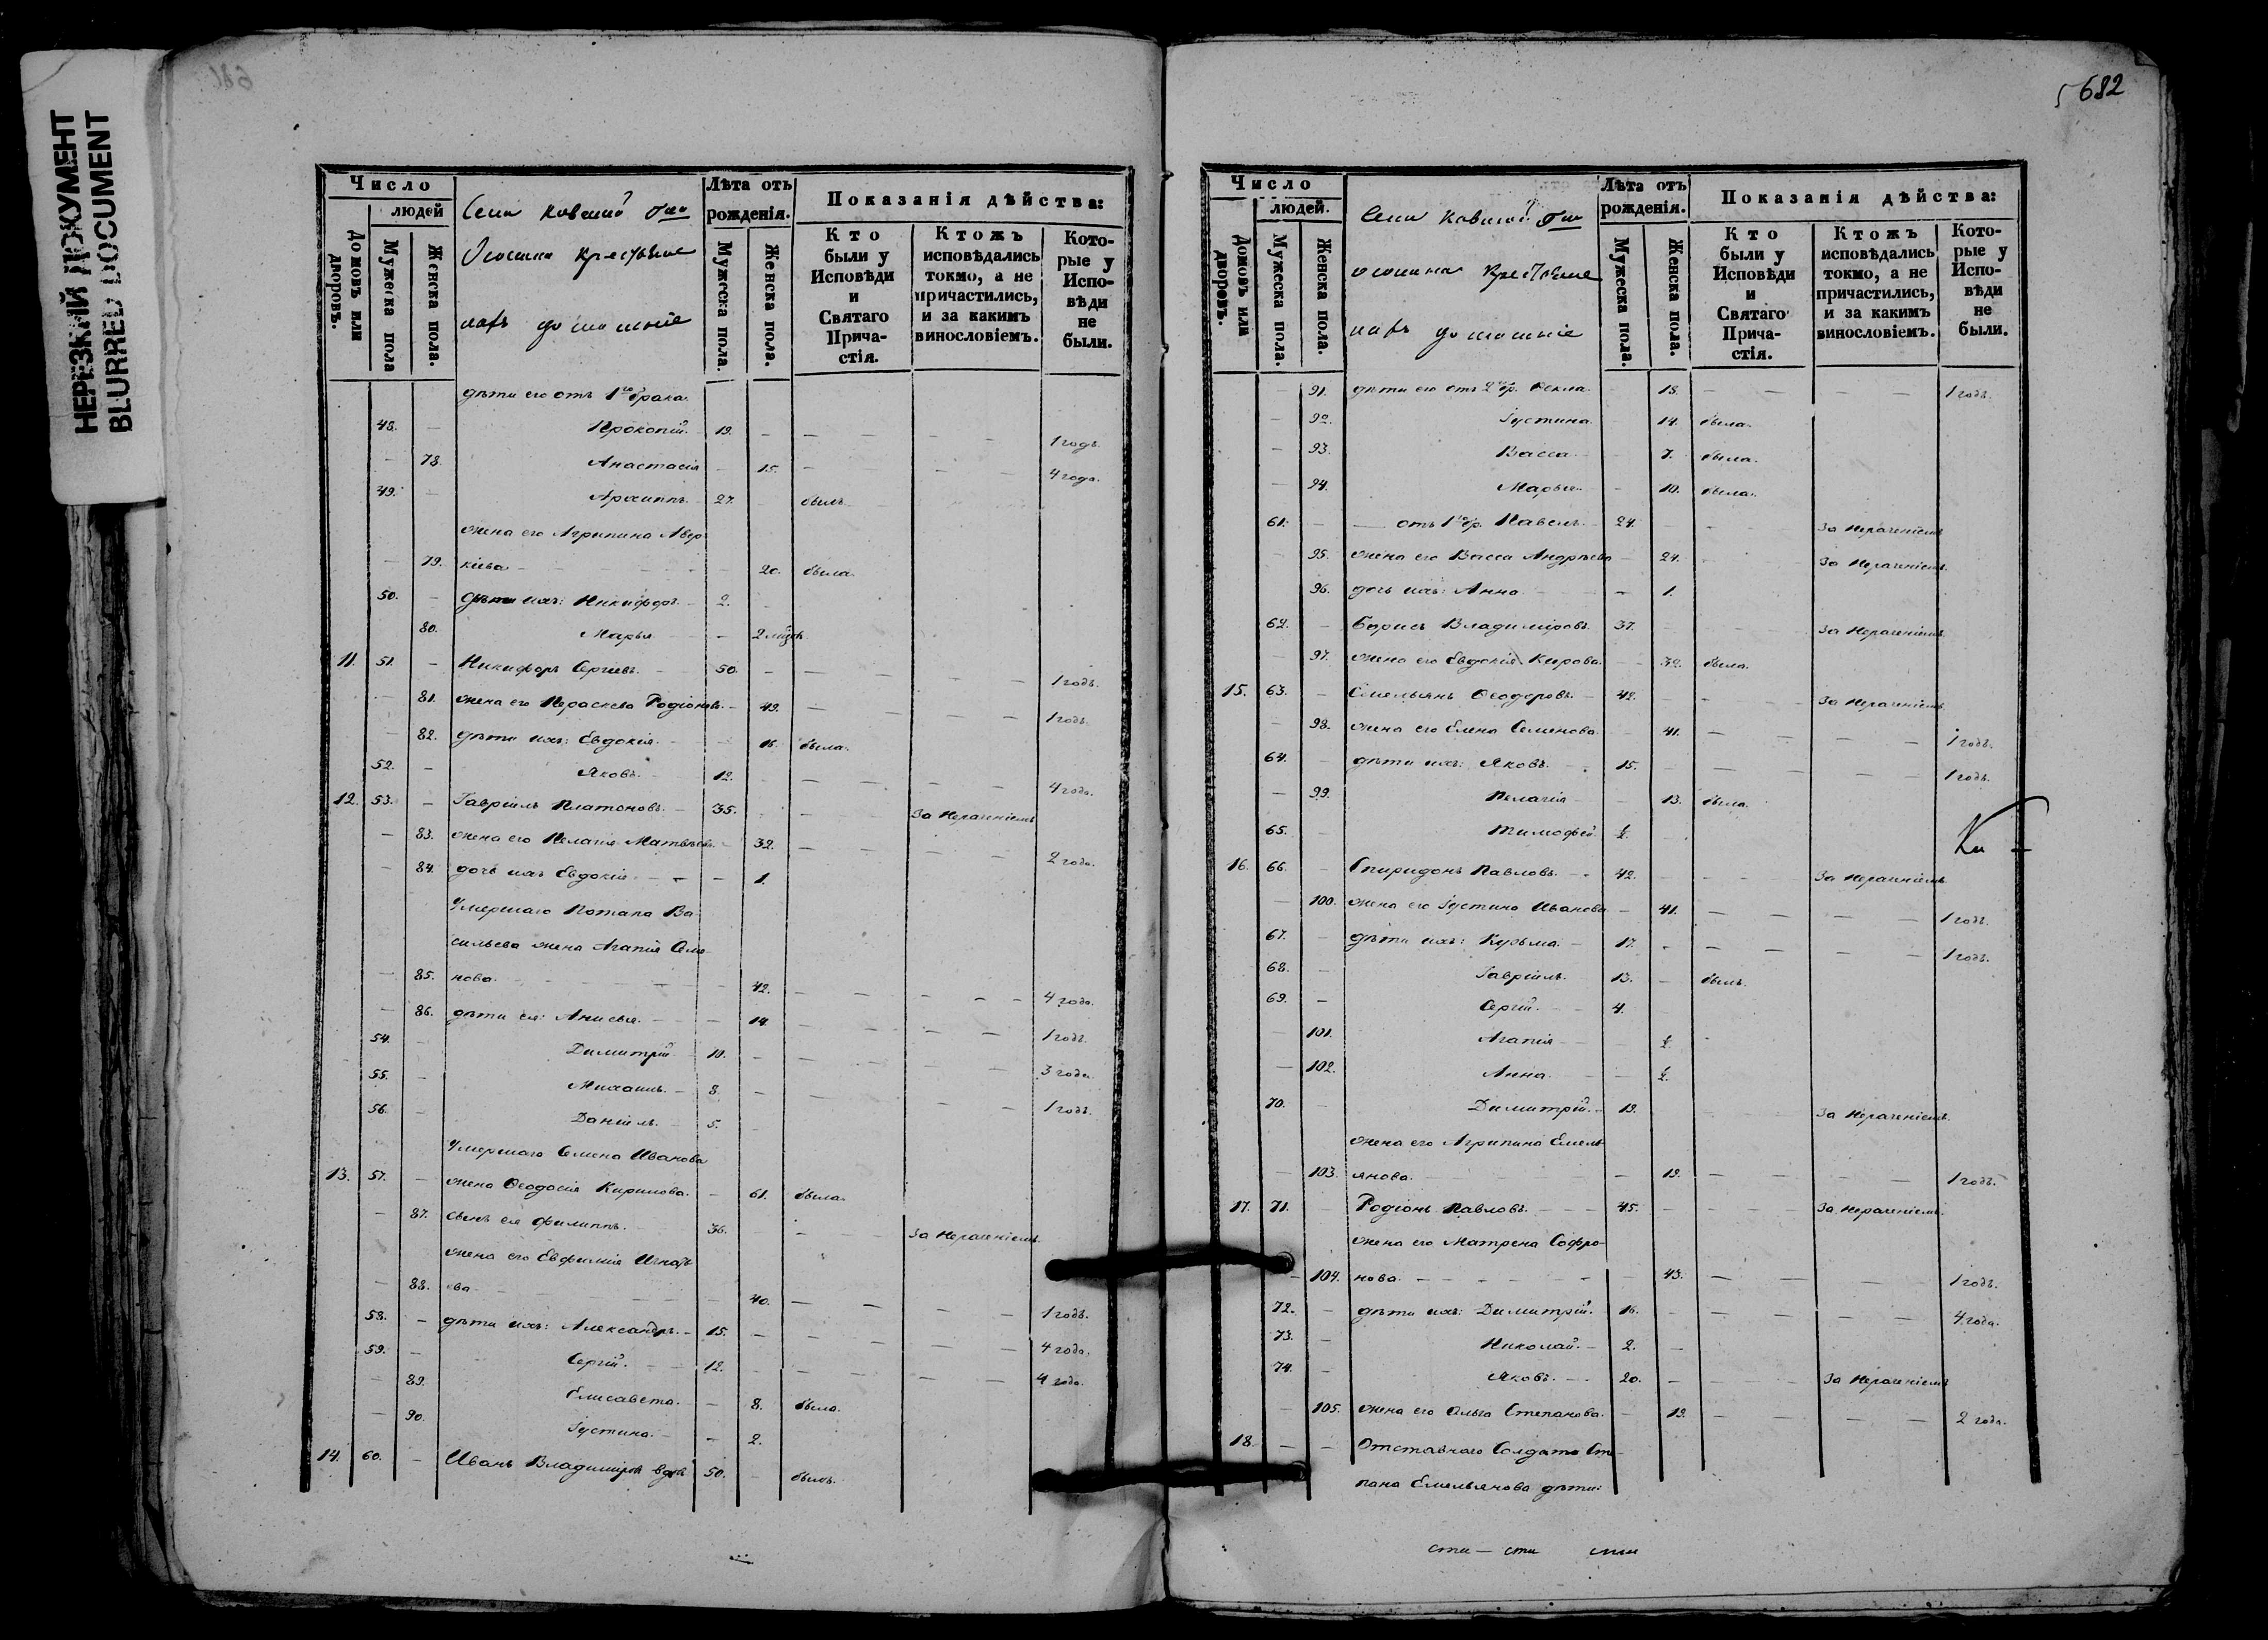 НЕРЕЗКИЙ ДОКУМЕНТ
BLURRED DOCUMENT
681
Число людей Лѣта отъ рожденія. Показанія дѣйства:
Домовъ или дворовъ. Мужеска пола Женска пола. Мужеска пола. Женска пола. Кто были у Исповѣди и Святаго Прича-стія. Ктожъ исповѣдались токмо, а не причастились, и за какимъ винословіемъ. Кото-рые у Испо-вѣди не были.
дѣти его отъ 1го брака.
48. — Прокопій. 19. — — — — — 1 годъ.
— 78. Анастасія — 15. — — — 4 года.
49. — Архиппъ. 27. былъ.
жена его Агрипина Авер
— 79. кіева — — 20. была.
50. — дѣти ихъ: Никифоръ. 2.
80. Марья — 2 мѣся.
11. 51. — Никифоръ Сергіевъ. 50. — — — — 1 годъ.
— 81. жена его Параскева Родіонова. — 49. — — — — 1 годъ.
— 82. дѣти ихъ: Евдокія. — 16. была.
52. — Яковъ. 12. — — — — 4 года.
12. 53. — Гавріилъ Платоновъ. — 35. — За нераченіемъ
— 83. жена его Пелагія Матвѣева. — 32. — — — — 2 года.
— 84. дочь ихъ Евдокія. — — — 1.
Умершаго Потапа Ва
сильева жена Агапія Семе
— 85. нова. — — — 42. — — — — — 4 года.
— 86. дѣти ея: Анисья. — — 14. — — — — 1 годъ.
54. — Димитрій 10. — — — — 3 года.
55. — Михаилъ. — 8. — — — — 1 годъ.
56. — Даніилъ. 5. —
Умершаго Семена Иванова
13. 57. — жена Ѳеодосія Кирилова. — 61. была.
— 87. сынъ ея Филиппъ. 36. — За нераченіемъ.
жена его Евфимія Игнать
— 88. ева — — — 40. — — — — 1 годъ.
58. — дѣти ихъ: Александръ. — 15. — — — — 4 года.
59. — Сергій. — 12. — — — — 4 года.
— 89. Елисавета. — 8. была.
— 90. Іустина. — — 2.
14. 60. — Иванъ Владиміровъ вдовъ 50. — былъ.
682
Число людей. Лѣта отъ рожденія. Показанія дѣйства:
Домовъ или дворовъ. Мужеска пола. Женска пола. Мужеска пола. Женска пола. Кто были у Исповѣди и Святаго Прича-стія. Ктожъ исповѣдались токмо, а не причастились, и за какимъ винословіемъ. Кото-рые у Испо-вѣди не были.
— 91. дѣти его отъ 2го бр. Ѳекла. 18. — — — — 1 годъ.
— 92. Іустина. 14. была.
— 93. Васса. — 7. была.
— 94. Марья. — 10. была.
61. — — отъ 1го бр. Павелъ. 24. — За нераченіемъ
— 95. жена его Васса Андреева — 24. За нераченіемъ.
96. дочь ихъ: Анна. — 1.
62. — Борисъ Владиміровъ. 37. За нераченіемъ.
— 97. жена его Евдокія Кирова. — 32. была.
15. 63. — Емельянъ Ѳеодоровъ. — 42. — За нераченіемъ
— 98. жена его Елена Семенова. 41. — — — — 1 годъ.
64. — дѣти ихъ: Яковъ. — 15. — — — — 1 годъ.
— 99. Пелагія — 13. была.
65. — Тимофей. ½.
16. 66. — Спиридонъ Павловъ. — 42. — — За нераченіемъ
— 100. жена его Іустина Иванова — 41. — — — — 1 годъ.
67. — дѣти ихъ: Кузьма. — 17. — — — — 1 годъ.
68. — Гавріилъ. — 13. — былъ.
69. — Сергій. — 4.
— 101. Агапія — ½.
— 102. Анна. — — ½.
70. — Димитрій. — 19. За нераченіемъ.
жена его Агрипина Емель
— 103. янова. — — 19. — — — — 1 годъ.
17. 71. — Родіонъ Павловъ. — — 45. — — — За нераченіемъ.
жена его Матрена Софро-
— 104. нова. — — — — — 43. — — — — 1 годъ.
72. — дѣти ихъ: Димитрій. 16. — — — — 4 года.
73. — Николай. — 2. —
74. — Яковъ. — 20. — — За нераченіемъ
— 105. жена его Ольга Степанова. — 19. — — — — 2 года.
18. — — Отставнаго Солдата Сте-
пана Емельянова дѣти: